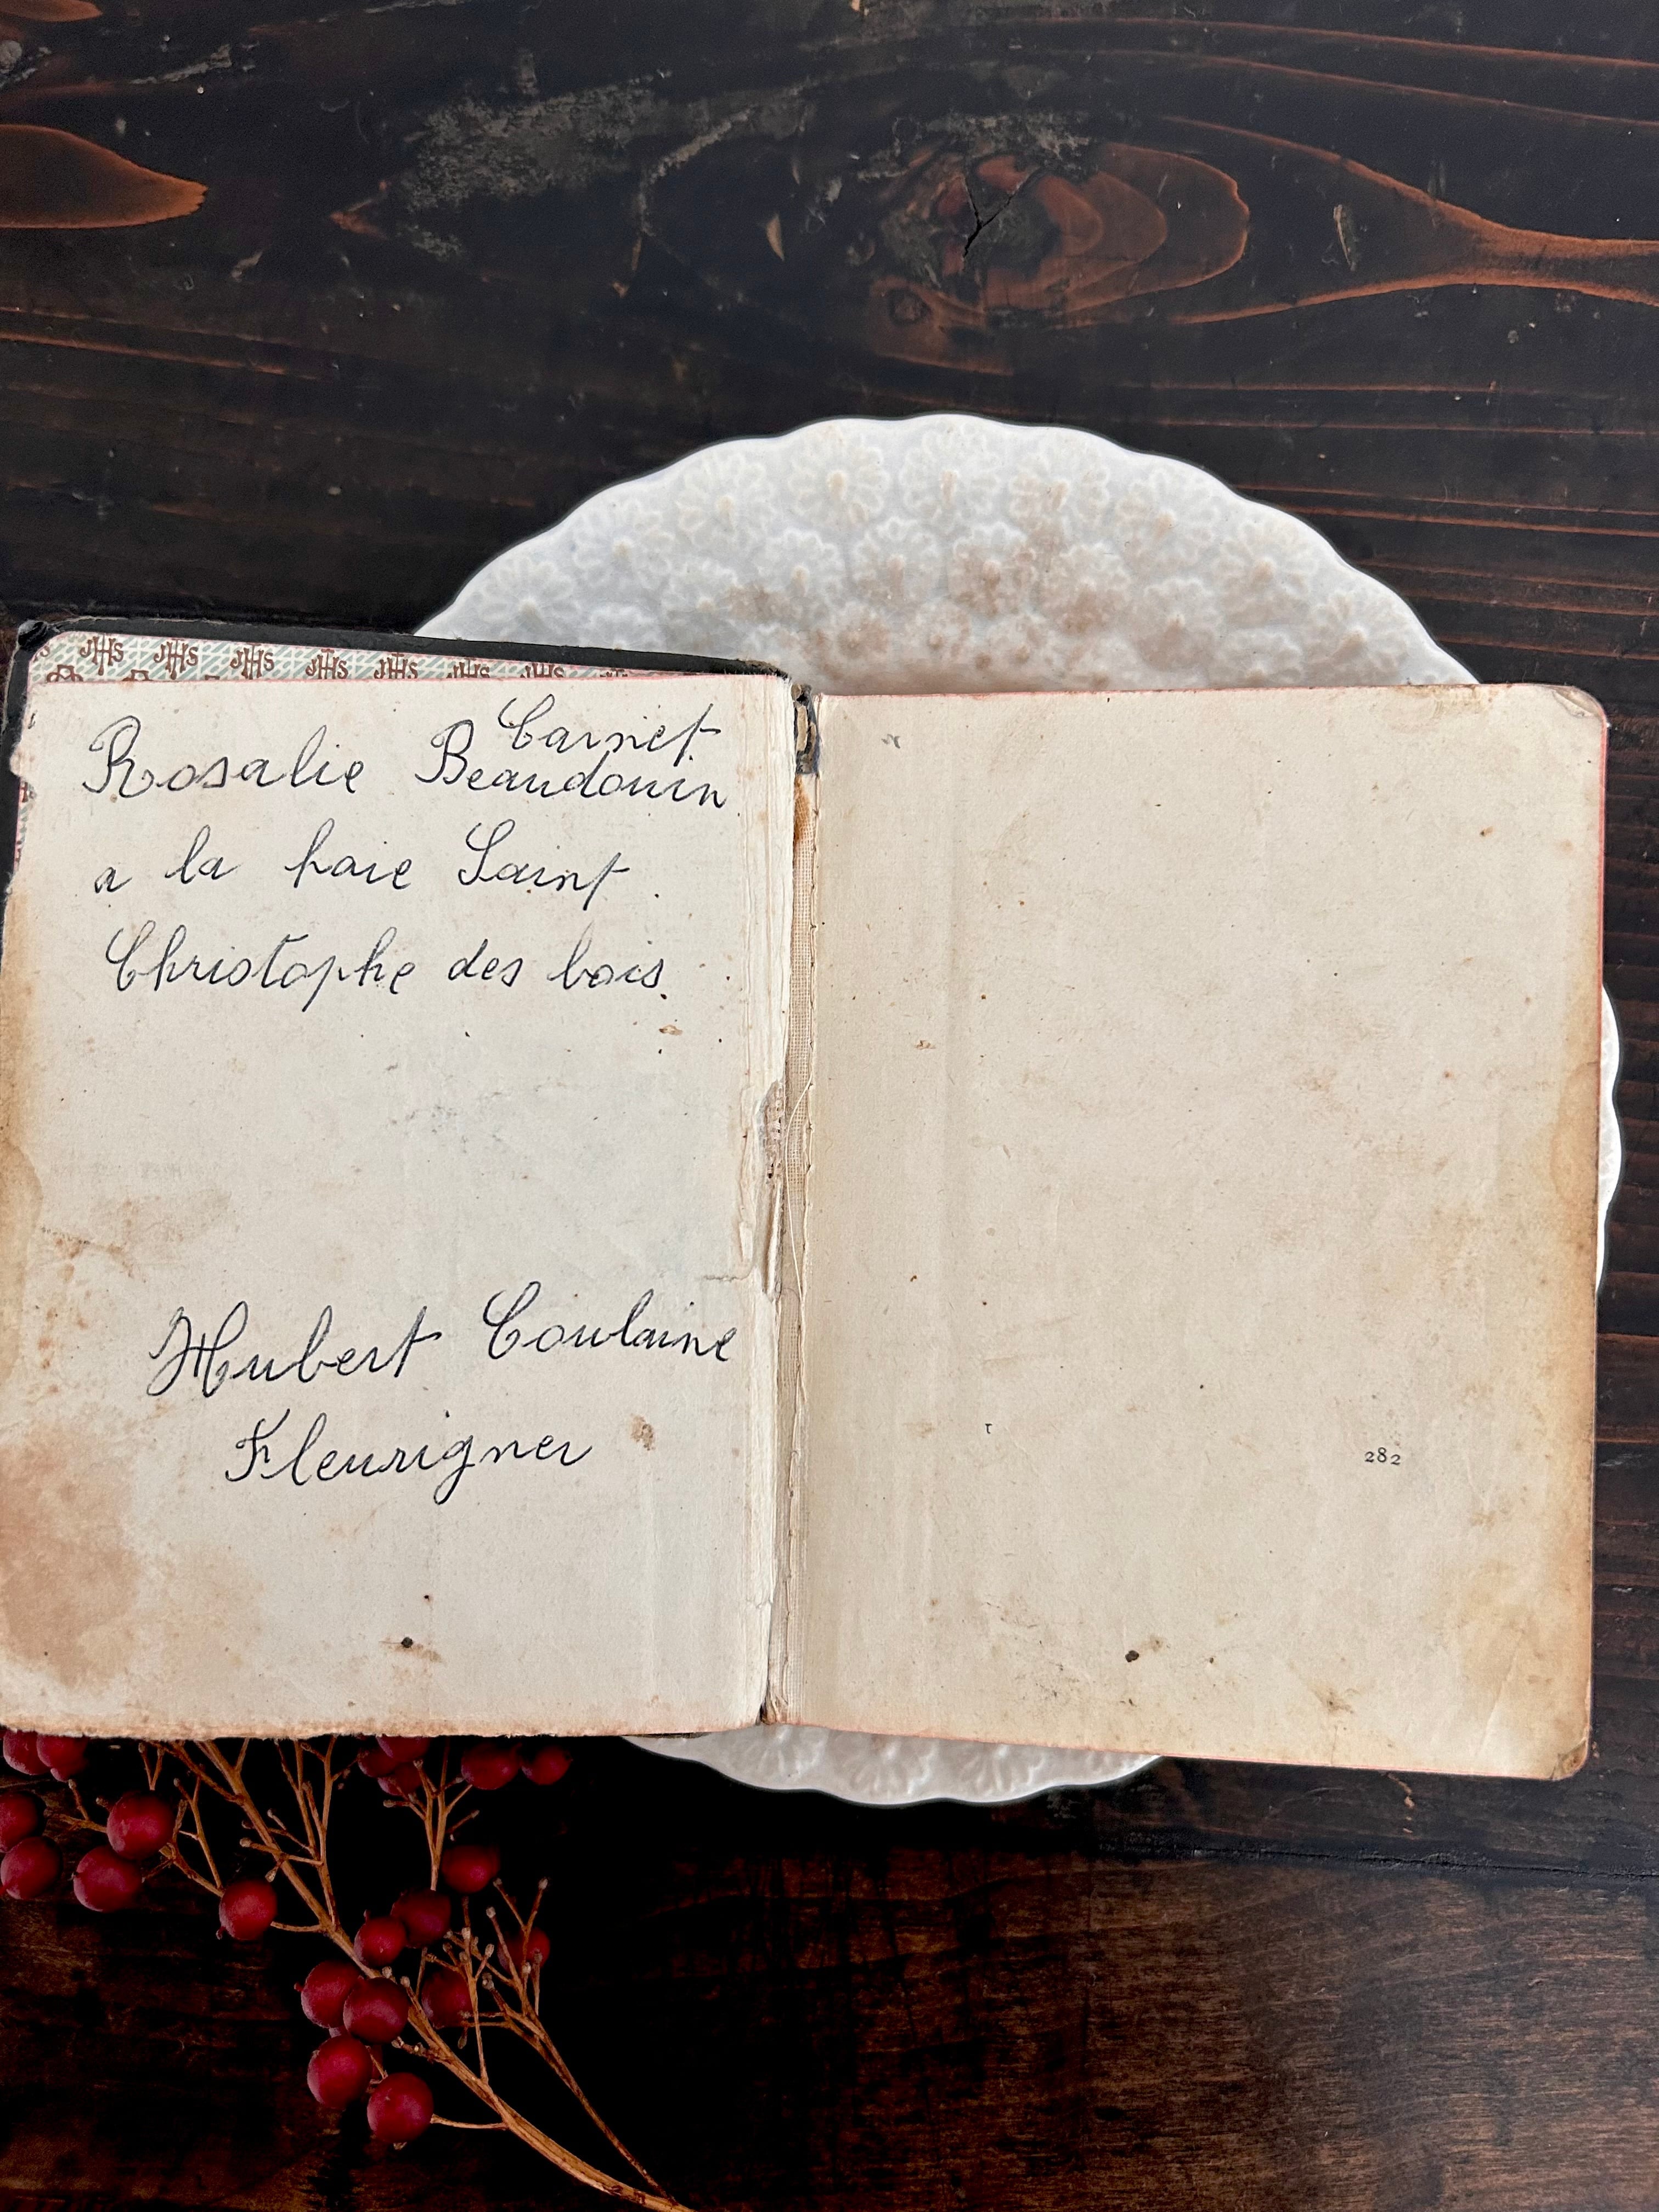 JHS JHS JHS JHS JHS JHS JHS
Carnet
Rosalie Beaudouin
a la haie Saint
Christophe des bois.
Hubert Coulaine
Fleurigner
282